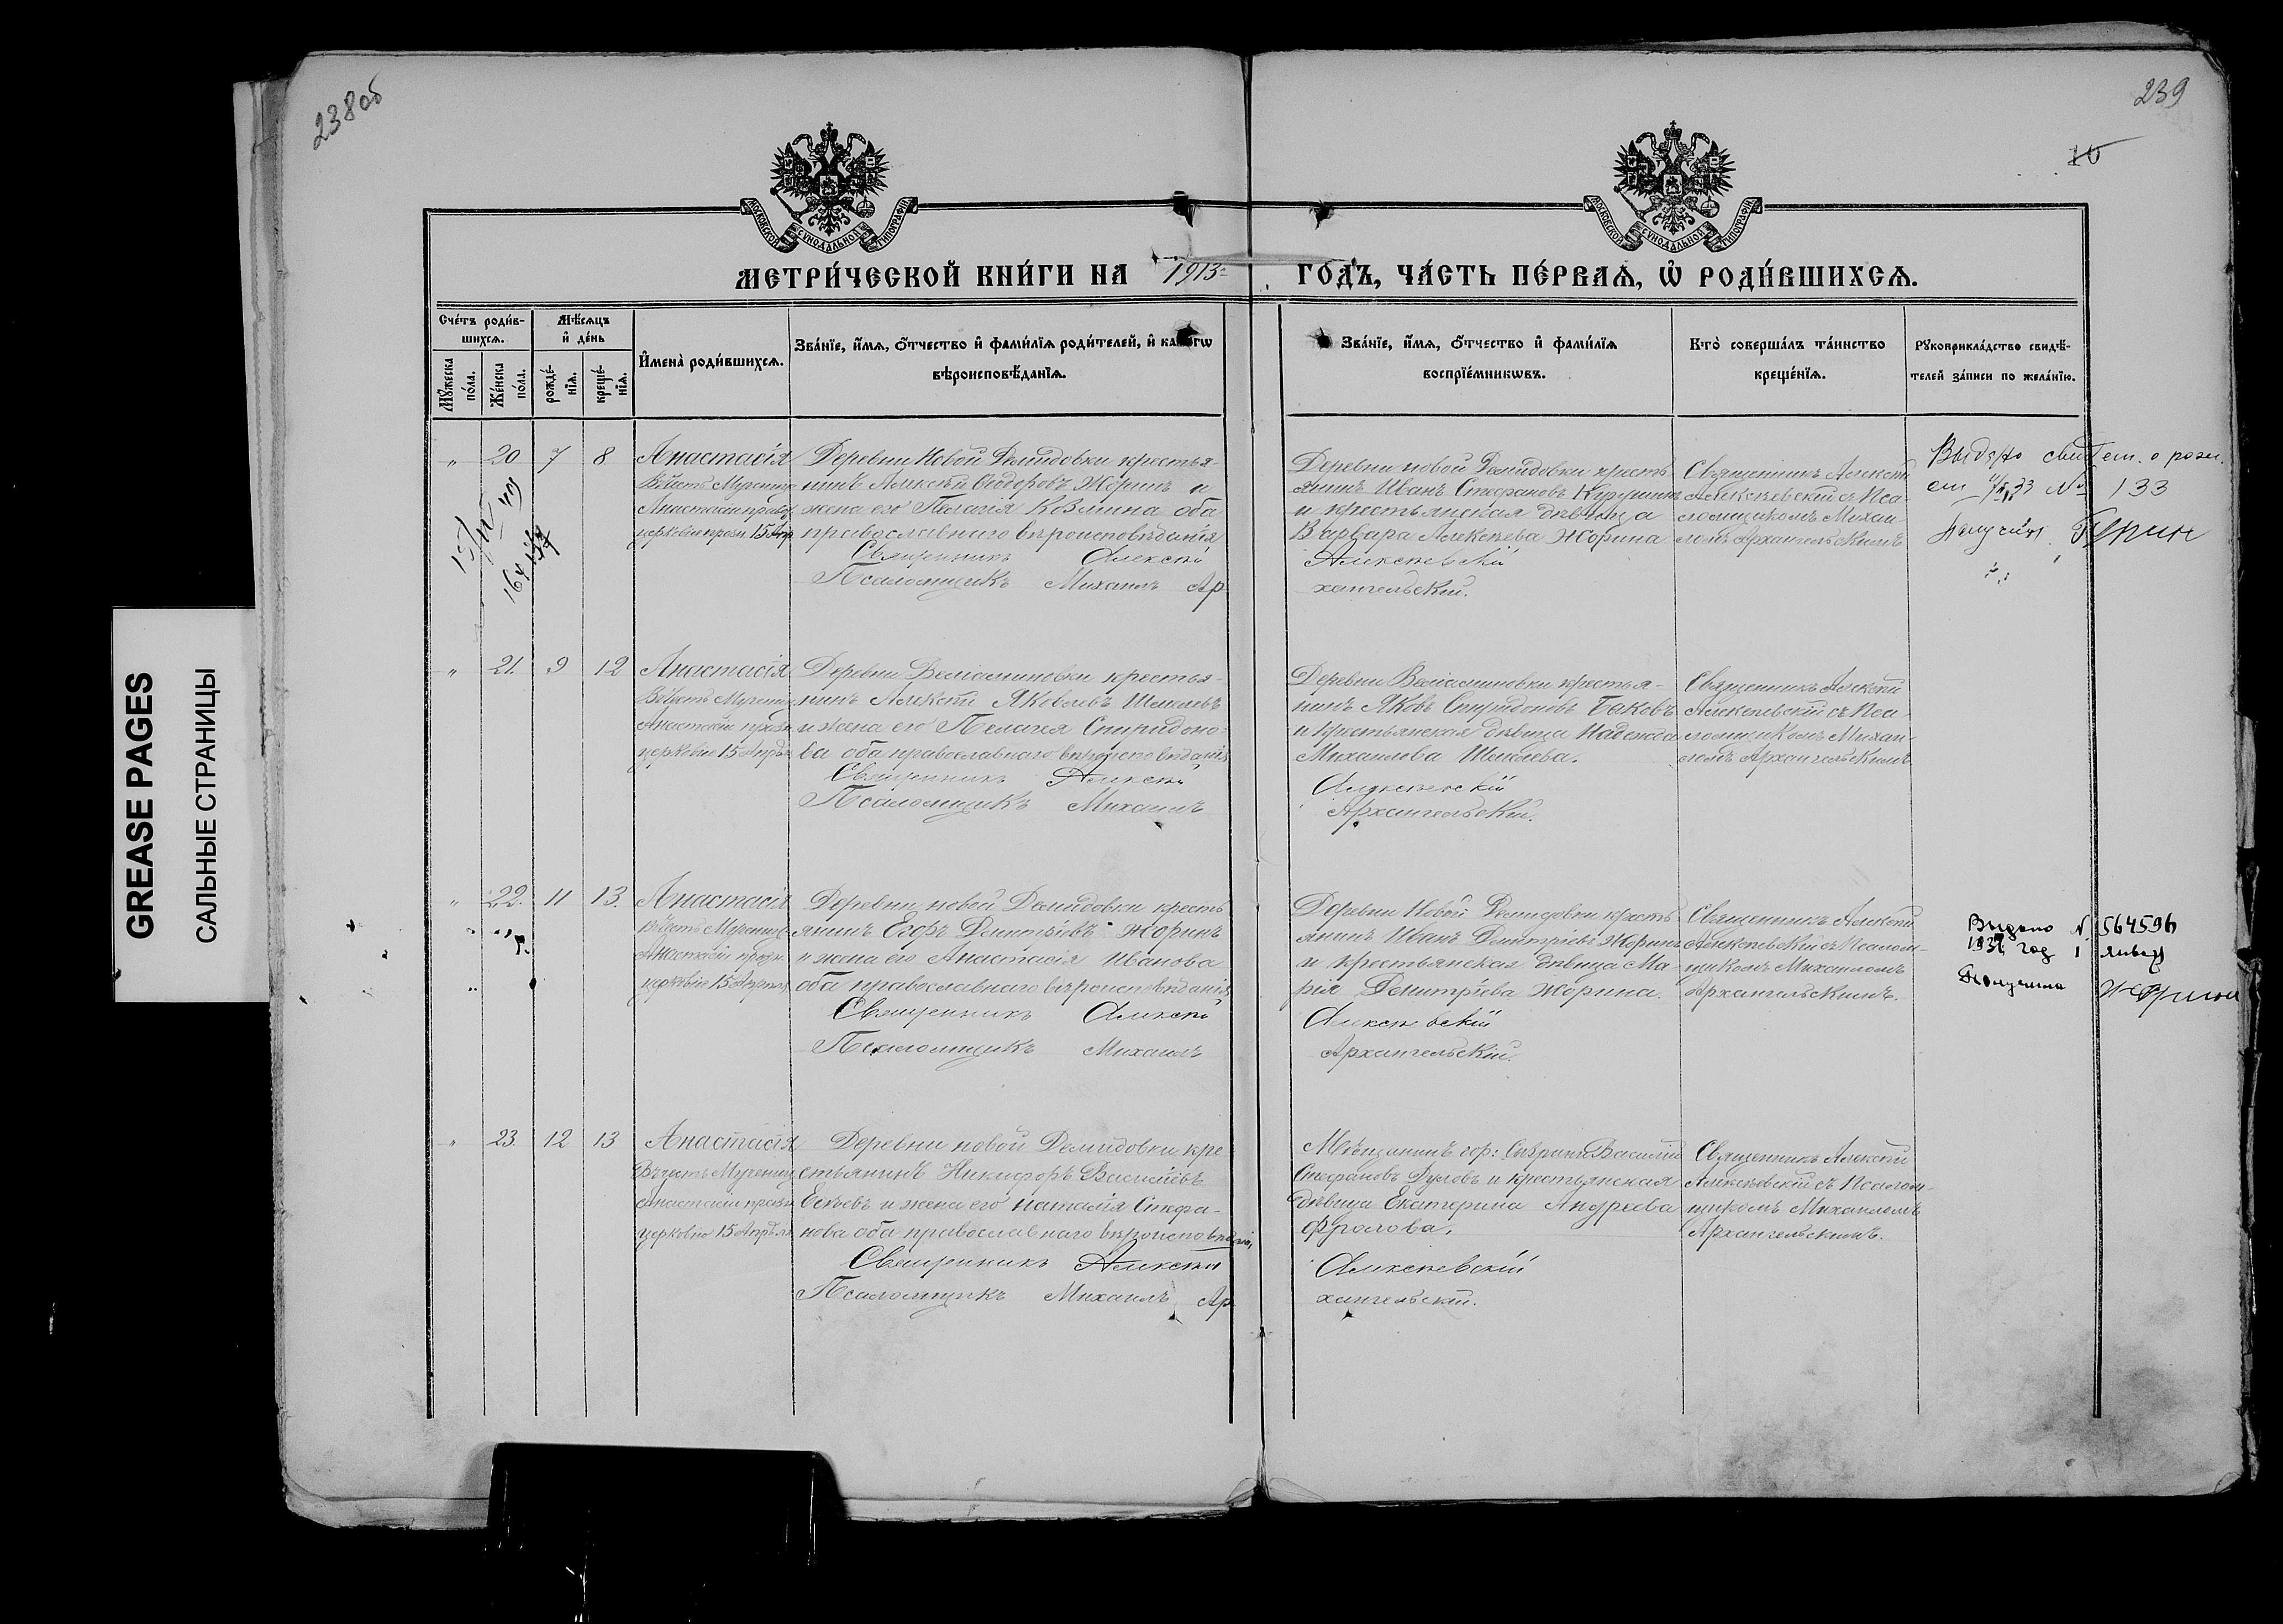 238об
239
10
МОСКОВСКОЙ СѴНОДАЛЬНОЙ ТИПОГРАФІИ
МОСКОВСКОЙ СѴНОДАЛЬНОЙ ТИПОГРАФІИ
МЕТРИ́ЧЕСКОЙ КНИ́ГИ НА 1913 ГО́ДЪ, ЧА́СТЬ ПЕ́РВАѦ, Ѡ҆ РОДИ́ВШИХСѦ.
Сче́тъ роди́в-
шихсѧ.
Мꙋ́жеска по́ла.
Же́нска по́ла.
Мѣ́сѧцъ
и҆ де́нь
рожде́-
нїѧ.
креще́-
нїѧ.
И҆мена̀ роди́вшихсѧ.
Зва́нїе, и҆́мѧ, ѻ҆́тчество и҆ фами́лїѧ роди́телей, и҆ како́гѡ
вѣроисповѣ́данїѧ.
Зва́нїе, и҆́мѧ, ѻ҆́тчество и҆ фами́лїѧ
воспрїе́мникѡвъ.
Кто̀ соверша́лъ та́инство
креще́нїѧ.
Рꙋкоприкла́дство свидѣ́-
телей за́писи по жела́нїю.
" 20 7 8
Анастасія
Въ честь Мученицы
Анастасіи празд.
церковію празн. 15 Апр
Деревни Новой Демидовки крестья-
нинъ Алексѣй Ѳедоровъ Жоринъ и
жена его Пелагія Козмина оба
православнаго вѣроисповѣданія
Священникъ Алексѣй
Псаломщикъ Михаилъ Ар
Деревни новой Демидовки кресть-
янинъ Иванъ Стефановъ
и крестьянская дѣвица
Варвара Алексѣева Жорина
Алексѣевскій
хангельскій.
Священникъ Алексѣй
Алексѣевскій съ Пса-
ломщикомъ Михаи-
ломъ Архангельскимъ
Выдано свидет. о рожд.
№ 133
" 21. 9 12
Анастасія
Въ честь Мучениц
Анастасіи праздн
церковію 15 Апрѣл
Деревни Веліаминовки крестья-
нинъ Алексѣй Яковлевъ Шмелевъ
и жена его Пелагея Спиридоно-
ва оба православнаго вѣроисповѣданія
Священникъ Алексѣй
Псаломщикъ Михаилъ
Деревни Веліаминовки крестья-
нинъ Яковъ Спиридоновъ Быковъ
и крестьянская дѣвица Надежда
Михаилова Шмелева.
Алексѣевскій
Архангельскій.
Священникъ Алексѣй
Алексѣевскій съ Пса-
ломщикомъ Михаи-
ломъ Архангельскимъ
" 22. 11 13.
Анастасія
Въ честь Мучениц
Анастасіи праздн.
церковію 15 Апрѣля
Деревни новой Демидовки кресть
янинъ Егоръ Димитріевъ Жоринъ
и жена его Анастасія Иванова
оба православнаго вѣроисповѣданія
Священникъ Алексѣй
Псаломщикъ Михаилъ
Деревни Новой Демидовки кресть
янинъ Иванъ Димитріевъ Жоринъ
и крестьянская дѣвица Ма-
рія Димитріева Жорина.
Алексѣевскій
Архангельскій.
Священникъ Алексѣй
Алексѣевскій съ Псалом-
щикомъ Михаиломъ
Архангельскимъ.
Выдано № 564596
год 1 январ
Получила
" 23. 12 13
Анастасія
Въ честь Мучениц
Анастасіи праздн
церковію 15 Апрѣля
Деревни новой Демидовки кре
стьянинъ Никифоръ Василіевъ
и жена его Наталія Стефа-
нова оба православнаго вѣроисповѣданія,
Священникъ Алексѣй
Псаломщикъ Михаилъ Ар
Мѣщанинъ гор: Василій
Стефановъ и крестьянская
дѣвица Екатерина Андреева
Фролова.
Алексѣевскій
хангельскій.
Священникъ Алексѣй
Алексѣевскій съ Псалом-
щикомъ Михаиломъ
Архангельскимъ.
GREASE PAGES
САЛЬНЫЕ СТРАНИЦЫ